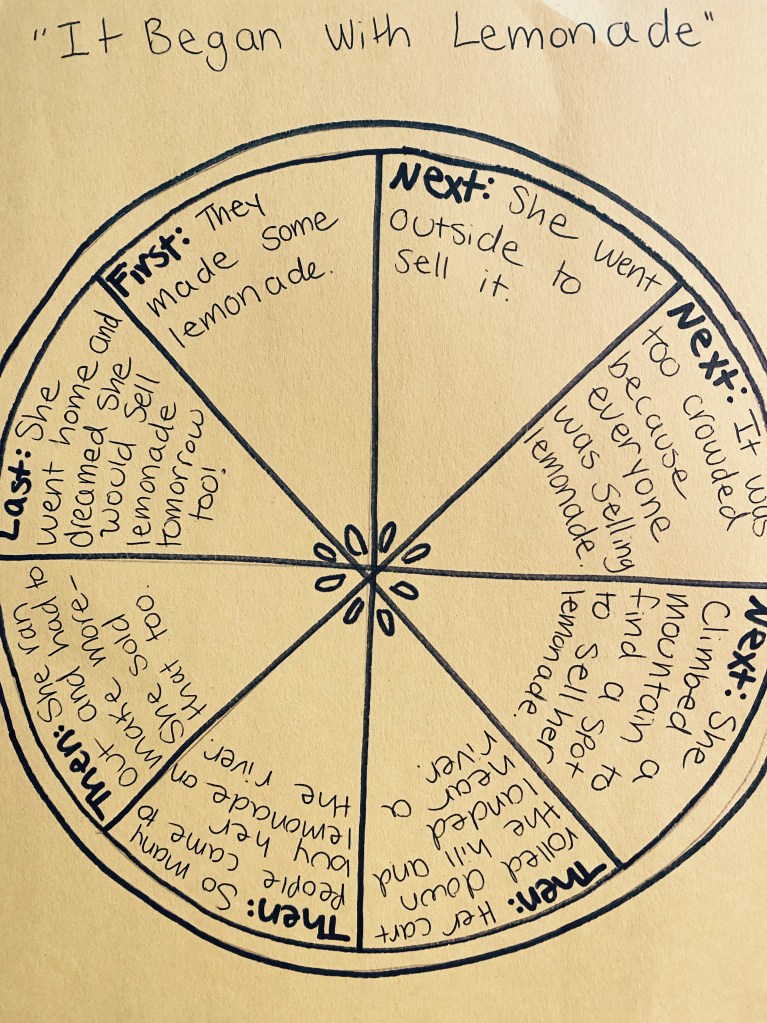 "It Began With Lemonade"
First: They
made some
lemonade.
Next: She went
outside to
sell it.
Next: It was
too crowded
because
everyone
was selling
lemonade.
Next: She
Climbed
mountain a
find a spot
to sell her
lemonade.
Then: Her cart
rolled down
the hill and
landed
near a
river.
Then: So many
people came to
buy her
lemonade on
the river.
Then: She ran
out and had to
make more-
She sold
that too.
Last: She
went home and
dreamed she
would sell
lemonade
tomorrow
too!